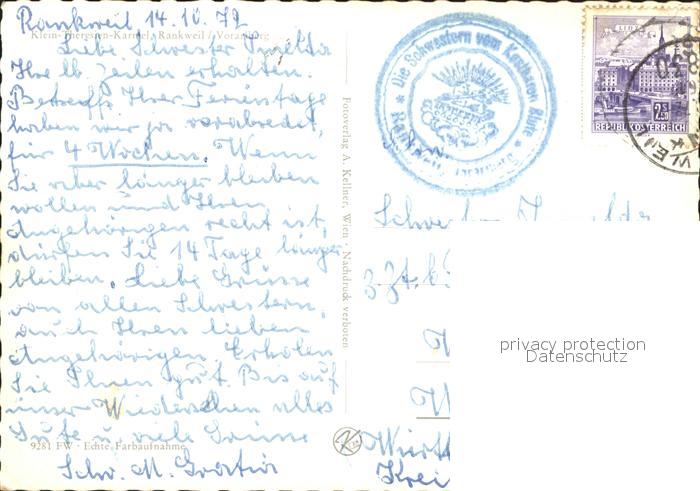 Rankweil 14.10.72
Klein-Theresien-Karmel, Rankweil / Vorarlberg
Liebe Schwester Imelda
Ihre lb. Zeilen erhalten.
Betreffs Ihrer Ferientage
haben wir ja verabredet,
für 4 Wochen. Wenn
Sie aber länger bleiben
wollen und Ihren
Angehörigen recht ist,
dürfen Sie 14 Tage länger
bleiben. Liebe Grüsse
von allen Schwestern,
auch Ihren lieben
Angehörigen. Erholen
Sie Ihnen gut. Bis auf
unser Wiedersehen alles
Gute u. viele Grüsse
9281 FW · Echte Farbaufnahme
Schw. M. Gratia
Fotoverlag A. Kellner, Wien · Nachdruck verboten
Die Schwestern vom Kostbaren Blute
Rankweil,
LINZ
2.50
REPUBLIK ÖSTERREICH
Schwester Imelda
z. Zt.
Württ
Krei
privacy protection
Datenschutz